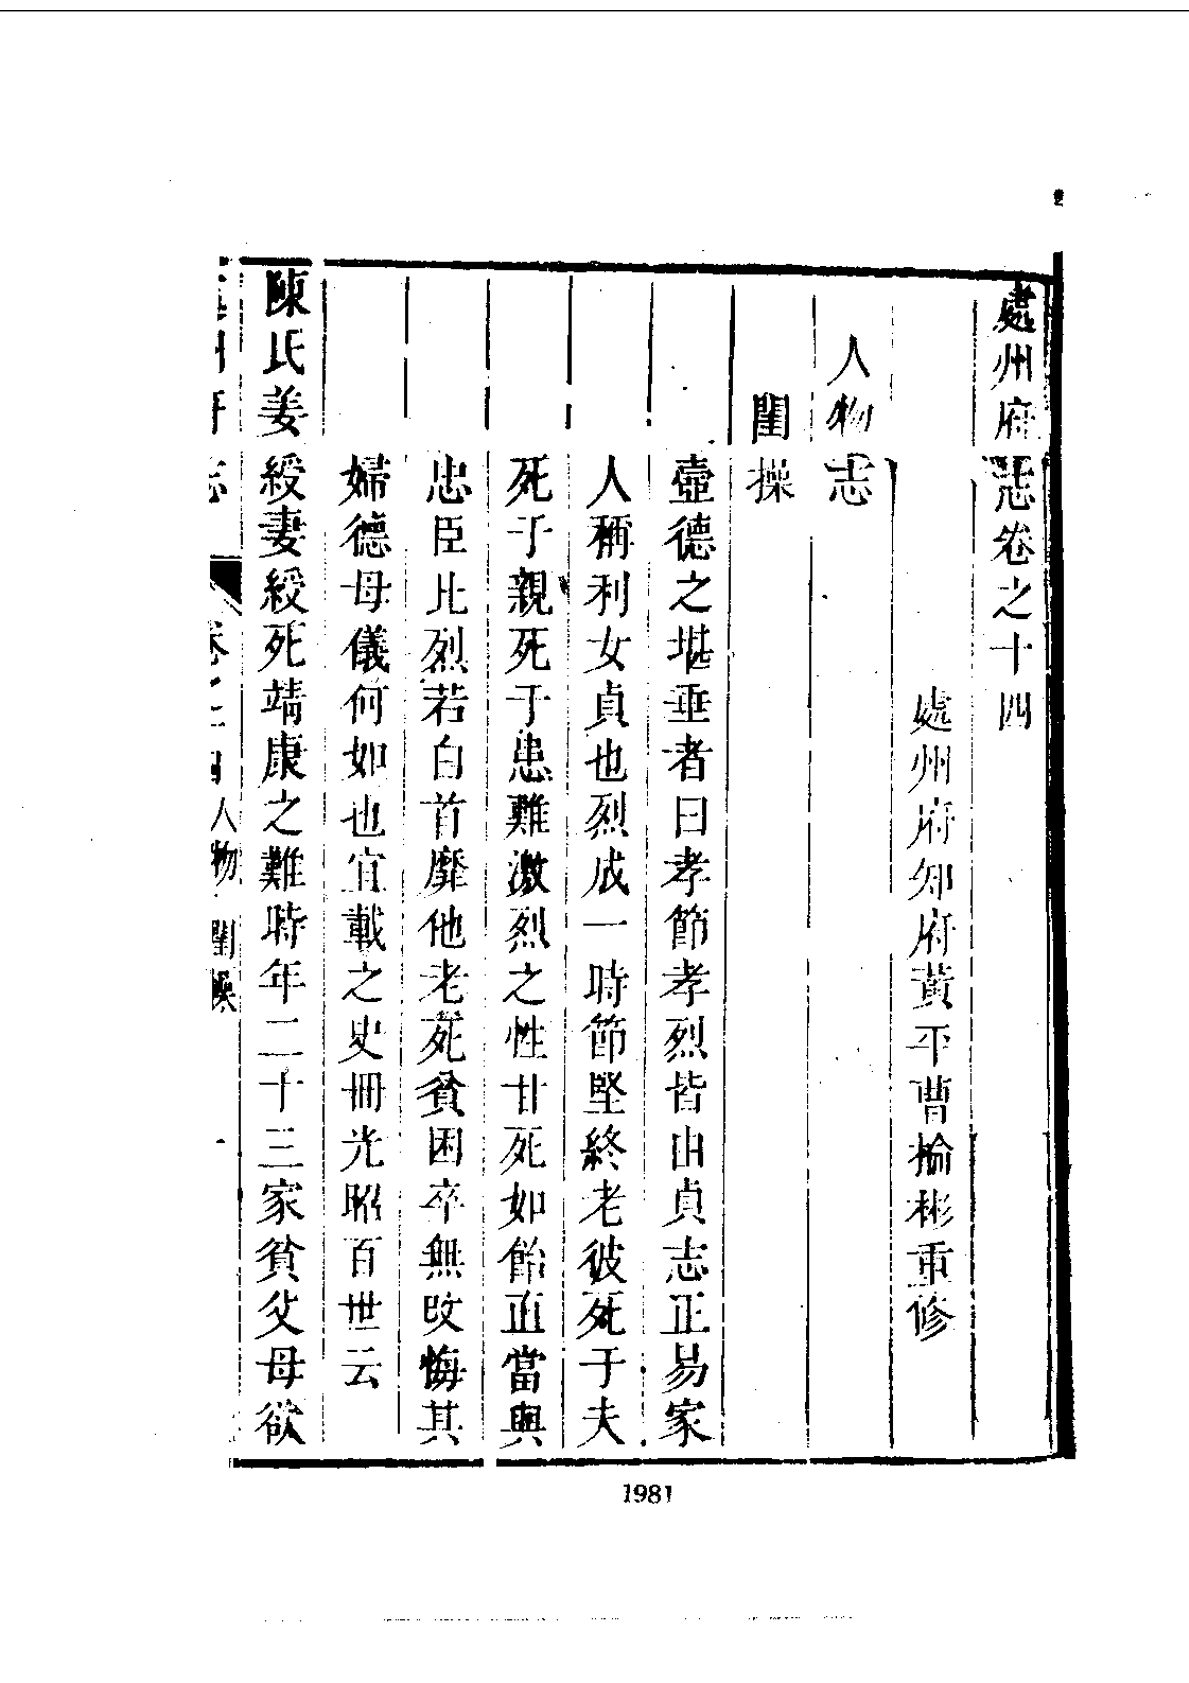 處州府志卷之十四
處州府知府黃平曹掄彬重修
人物志
閨操
壼德之堪垂者曰孝節孝烈皆由貞志正易家
人稱利女貞也烈成一時節堅終老彼死于夫
死于親死于患難激烈之性甘死如飴直當與
忠臣比烈若白首靡他老死貧困卒無改悔其
婦德母儀何如也宜載之史冊光昭百世云
陳氏姜綬妻綬死靖康之難時年二十三家貧父母欲
處州府志
卷之十四人物 閨操
一
1981